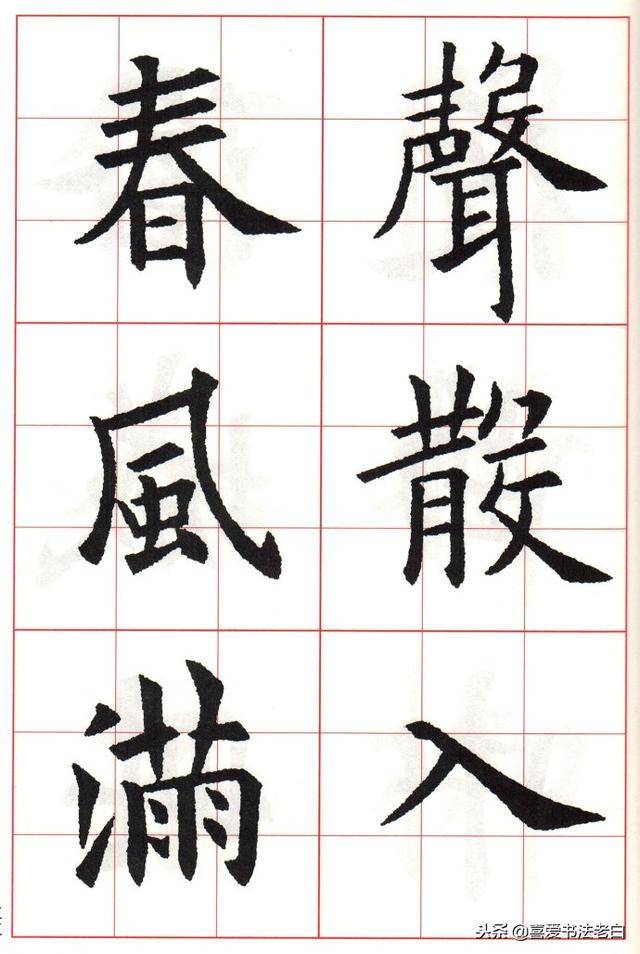 聲散入
春風滿
头条@喜爱书法老白